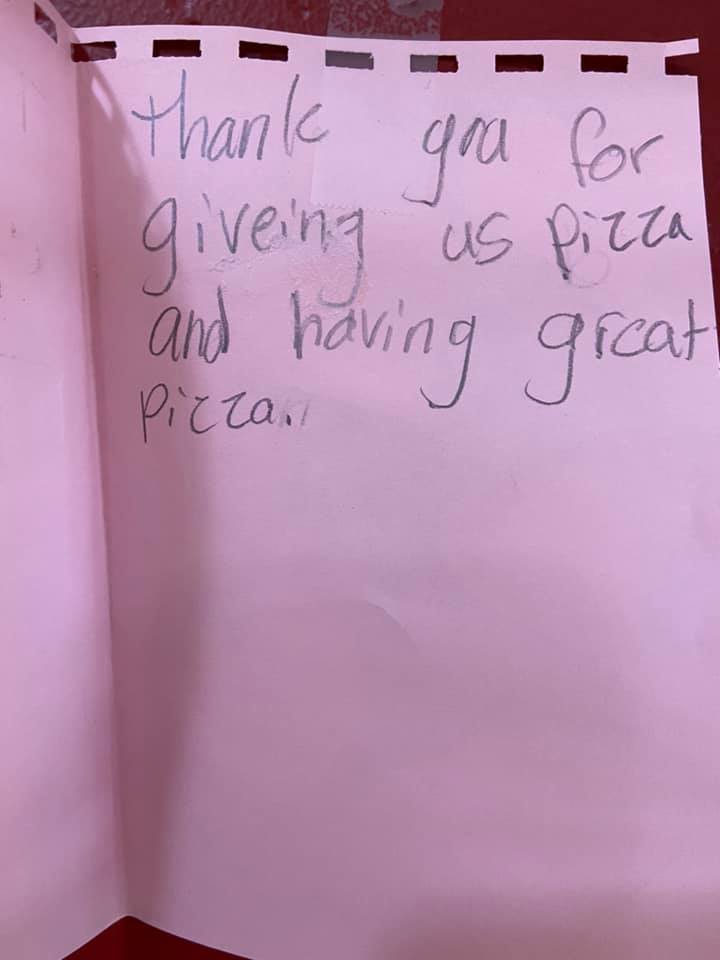 thank you for
giveing us pizza
and having great
pizza.